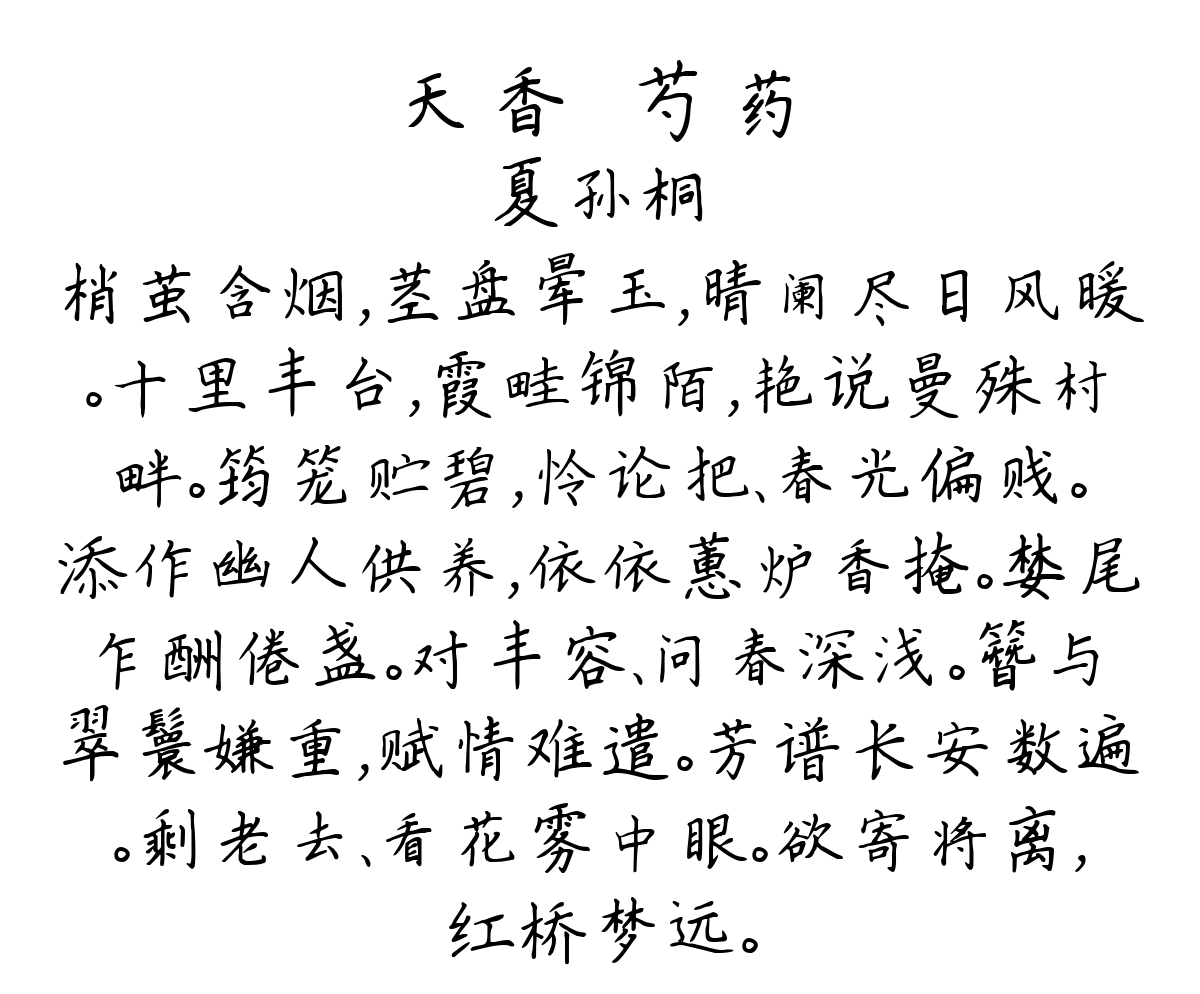 天香 芍药
夏孙桐
梢茧含烟,茎盘晕玉,晴阑尽日风暖
。十里丰台,霞畦锦陌,艳说曼殊村
畔。筠笼贮碧,怜论把、春光偏贱。
添作幽人供养,依依蕙炉香掩。婪尾
乍酬倦盏。对丰容、问春深浅。簪与
翠鬟嫌重,赋情难遣。芳谱长安数遍
。剩老去、看花雾中眼。欲寄将离,
红桥梦远。